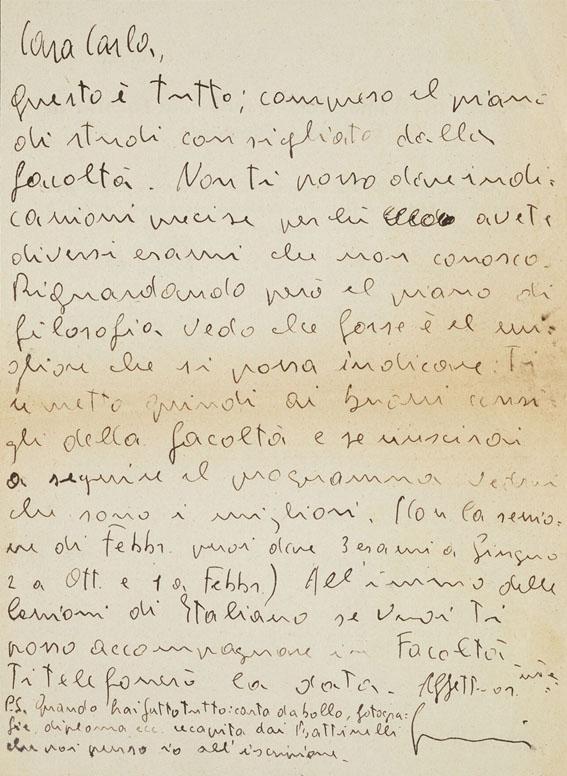 Cara Carla,
Questo è tutto; compreso el piano
di studi consigliato dalla
facoltà. Non ti posso dare indi-
cazioni precise perchè avete
diversi esami che non conosco.
Riguardando però el piano di
filosofia vedo che forse è el mi-
gliore che si possa indicare. Ti
rimetto quindi ai buoni consi-
gli della facoltà e se riuscirai
a seguire el programma vedrai
che sono i migliori. (Con la sessio-
ne di Febbr. puoi dare 3 esami a Giugno
2 a Ott. e 1 a Febbr.) All'inizio delle
lezioni di Italiano se vuoi Ti
posso accompagnare in Facoltà.
Ti telefonerò la data.
P.S. Quando hai fatto tutto: carta da bollo, fotogra-
fie, diploma ecc. recapita dai Battinelli
che poi penso io all'iscrizione.